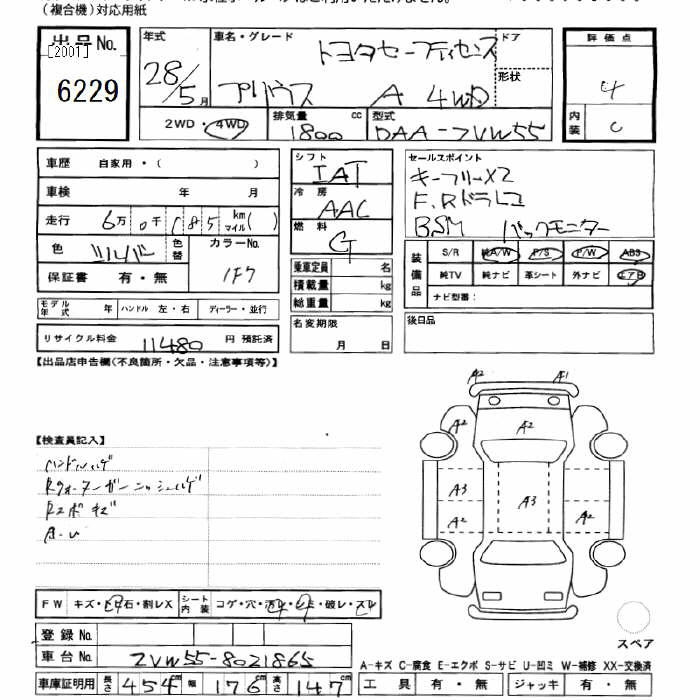 (複合機)対応用紙
出品No.
[200T]
6229
年式
28/5月
車名・グレード
トヨタセーフティセンス
プリウス A 4WD
ドア
形状
評価点
4
内装
C
2WD・4WD
排気量
1800 cc
型式
DAA-ZVW55
車歴 自家用・( )
車検 年 月
走行 6万0千185 km マイル( )
色 シルバー
色替
カラーNo.
1F7
保証書 有・無
モデル年式 年 ハンドル 左・右 ディーラー・並行
リサイクル料金 11480 円 預託済
シフト
IAT
冷房
AAC
燃料
G
乗車定員 名
積載量 kg
総重量 kg
名変期限
月 日
セールスポイント
キーフリーX2
F.Rドラレコ
BSM バックモニター
装備品
S/R 純A/W P/S P/W ABS
純TV 純ナビ 革シート 外ナビ エアB
ナビ型番:
後日品
【出品店申告欄(不良箇所・欠品・注意事項等)】
【検査員記入】
ハンドルハゲ
A2 A1
A2 A2
A3 A3
A2 A2 A2
FW キズ・トビ石・割レX
シート内装 コゲ・穴・汚レ・シミ・破レ・スレ
登録No.
車台No. ZVW55-8021865
車庫証明用 長さ 454cm 幅 176cm 高さ 147cm
スペア
A-キズ C-腐食 E-エクボ S-サビ U-凹ミ W-補修 XX-交換済
工具 有・無 ジャッキ 有・無